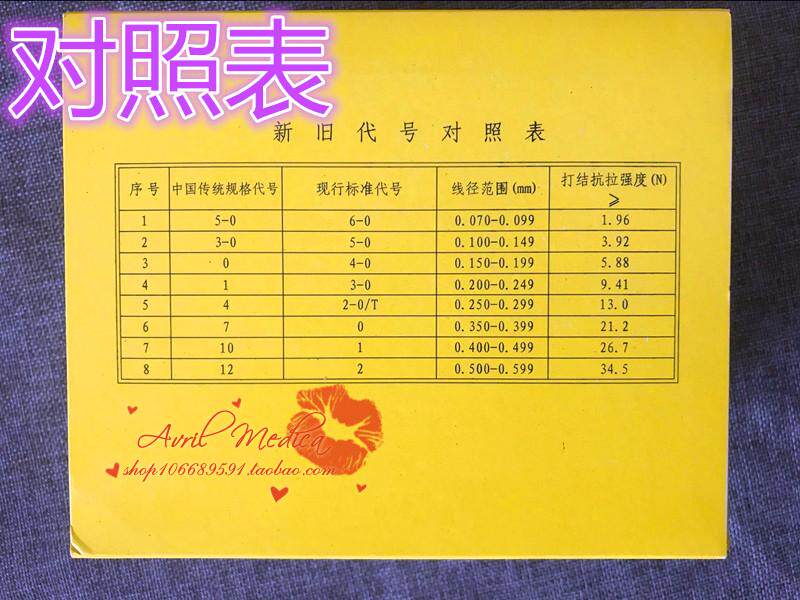 对照表
新旧代号对照表
序号 中国传统规格代号 现行标准代号 线径范围(mm) 打结抗拉强度(N) ≥
1 5-0 6-0 0.070-0.099 1.96
2 3-0 5-0 0.100-0.149 3.92
3 0 4-0 0.150-0.199 5.88
4 1 3-0 0.200-0.249 9.41
5 4 2-0/T 0.250-0.299 13.0
6 7 0 0.350-0.399 21.2
7 10 1 0.400-0.499 26.7
8 12 2 0.500-0.599 34.5
Avril Medica
shop106689591.taobao.com